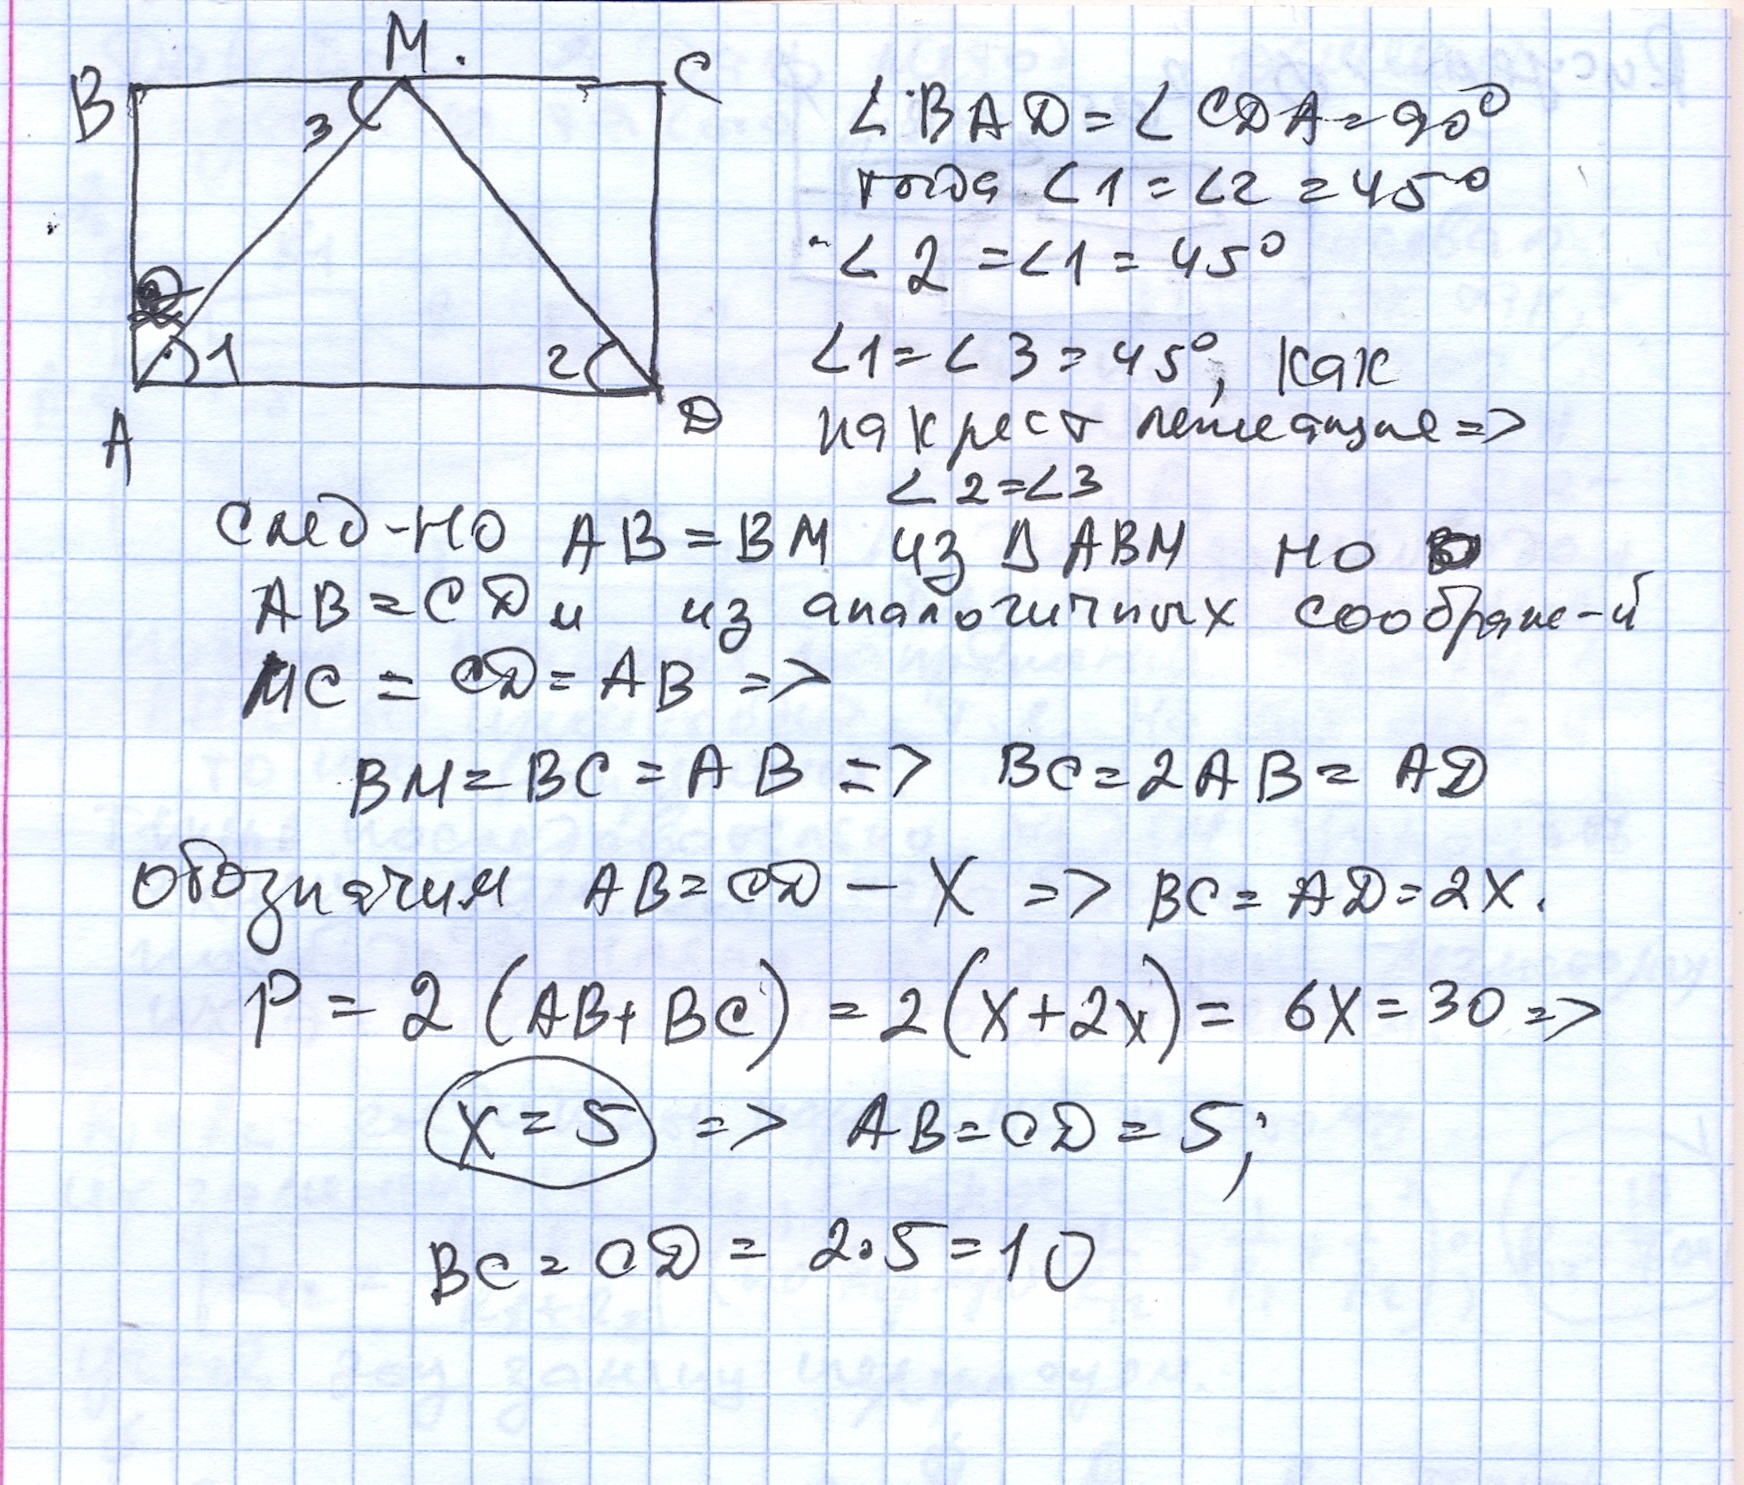 M.
B
C
3
1
2
A
D
∠BAD = ∠CDA = 90°
тогда ∠1 = ∠2 = 45°
∠2 = ∠1 = 45°
∠1 = ∠3 = 45°, как
накрест лежащие =>
∠2 = ∠3
След-но AB = BM из Δ ABM но
AB = CD и из аналогичных соображе-й
MC = CD = AB =>
BM = BC = AB => BC = 2AB = AD
обозначим AB = CD – X => BC = AD = 2X.
P = 2 (AB + BC) = 2(X + 2X) = 6X = 30 =>
X = 5 => AB = CD = 5;
BC = CD = 2·5 = 10